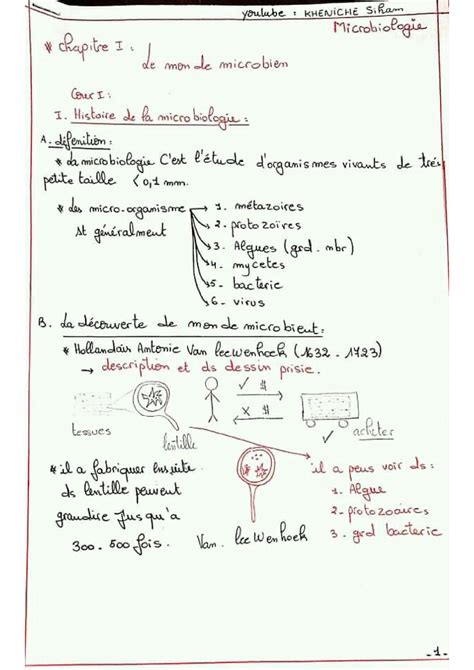 youtube : KHENICHE Siham
Microbiologie
* Chapitre I :
Le mon de microbien
Cour I :
I. Histoire de la microbiologie :
A. difenition :
* La microbiologie C'est l'étude d'organismes vivants de trés
petite taille < 0,1 mm.
* des micro-organisme
st généralment
1. métazoires
2 - protozoïres
3. Algues (grd. mbr)
4. mycetes
5 - bacterie
6 - virus
B. La découverte de monde microbient :
* Hollandair Antonie Van leewenhoek (1632 - 1723)
→ description et ds dessin prisie.
✓ $
x $
tessues
lentille
✓ acheter
* il a fabriquer ensuite
ds lentille peuvent
grandire Jusqu'a
300 - 500 fois.
Van leeWenhoek
il a peus voir ds :
1. Algue
2 - protozoaires
3 - grd bacterie
- 1 -